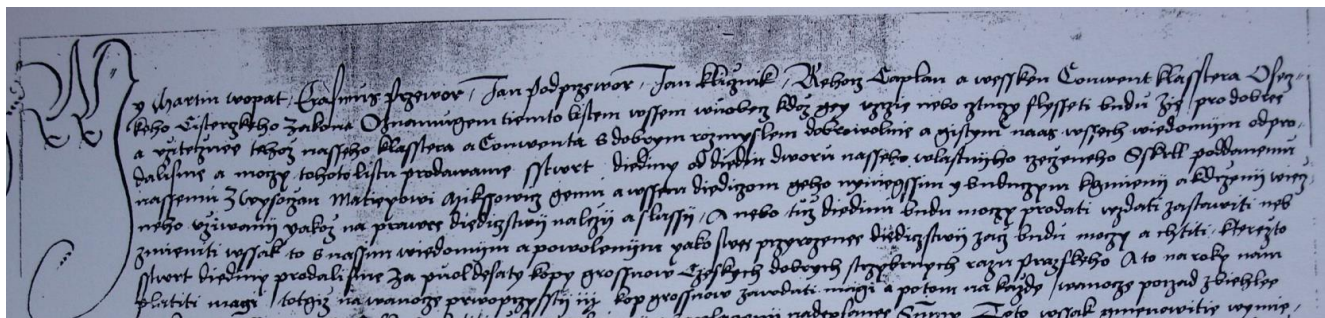 My Martin wopat, Erasmus przewor, Jan Podprzewor, Jan kligwik, Rzehorz Caplan a wessken Conwent klasstera Osen-
keho Cisterskeho Zakona Oznamugem tiemto listem wssem wuobecz kdoz gey uzrzie nebo cztucz slysseti budu Zie pro dobree
a uziteznee tehoz nasseho klasstera a Conwenta s dobrym rozmyslem dobrowolnie a gistym naas wssech wiedomiim odpro-
dalisme a moczy tohoto listu prodawame sstwrt diediny od diedin dworu nasseho wlastniiho rzezeneho Sskrll poddanemu
nassemu z Wysoczan Matiegowi Mikssowicz gemu a wssem diediczom geho nyniegssim y buduczym k gmienii a k drzenii wiecz-
neho uziwanii yakoz na prawee diediczstwii nalezii a slussii, A nebo tuz diedinu budu moczy prodati wzdati zastawiti neb
zmieniti wssak to s nassim wiedomiim a powolenim yako swee przyrozenee diediczstwii zacz budu moczy a chtiti, kterezto
sstwrt diediny prodalisme za puol desaty kopy grossuow Czeskych dobrych strzybrnych razu Prazskeho A to na roky nam
platiti magi totiz na wanocze prwoprzysstii iij kop grossuow zawdati magi a potom na kazde wanocze porzad zbiehlee
nadepsanee Summy Toto wssak gmenowitie wymie-